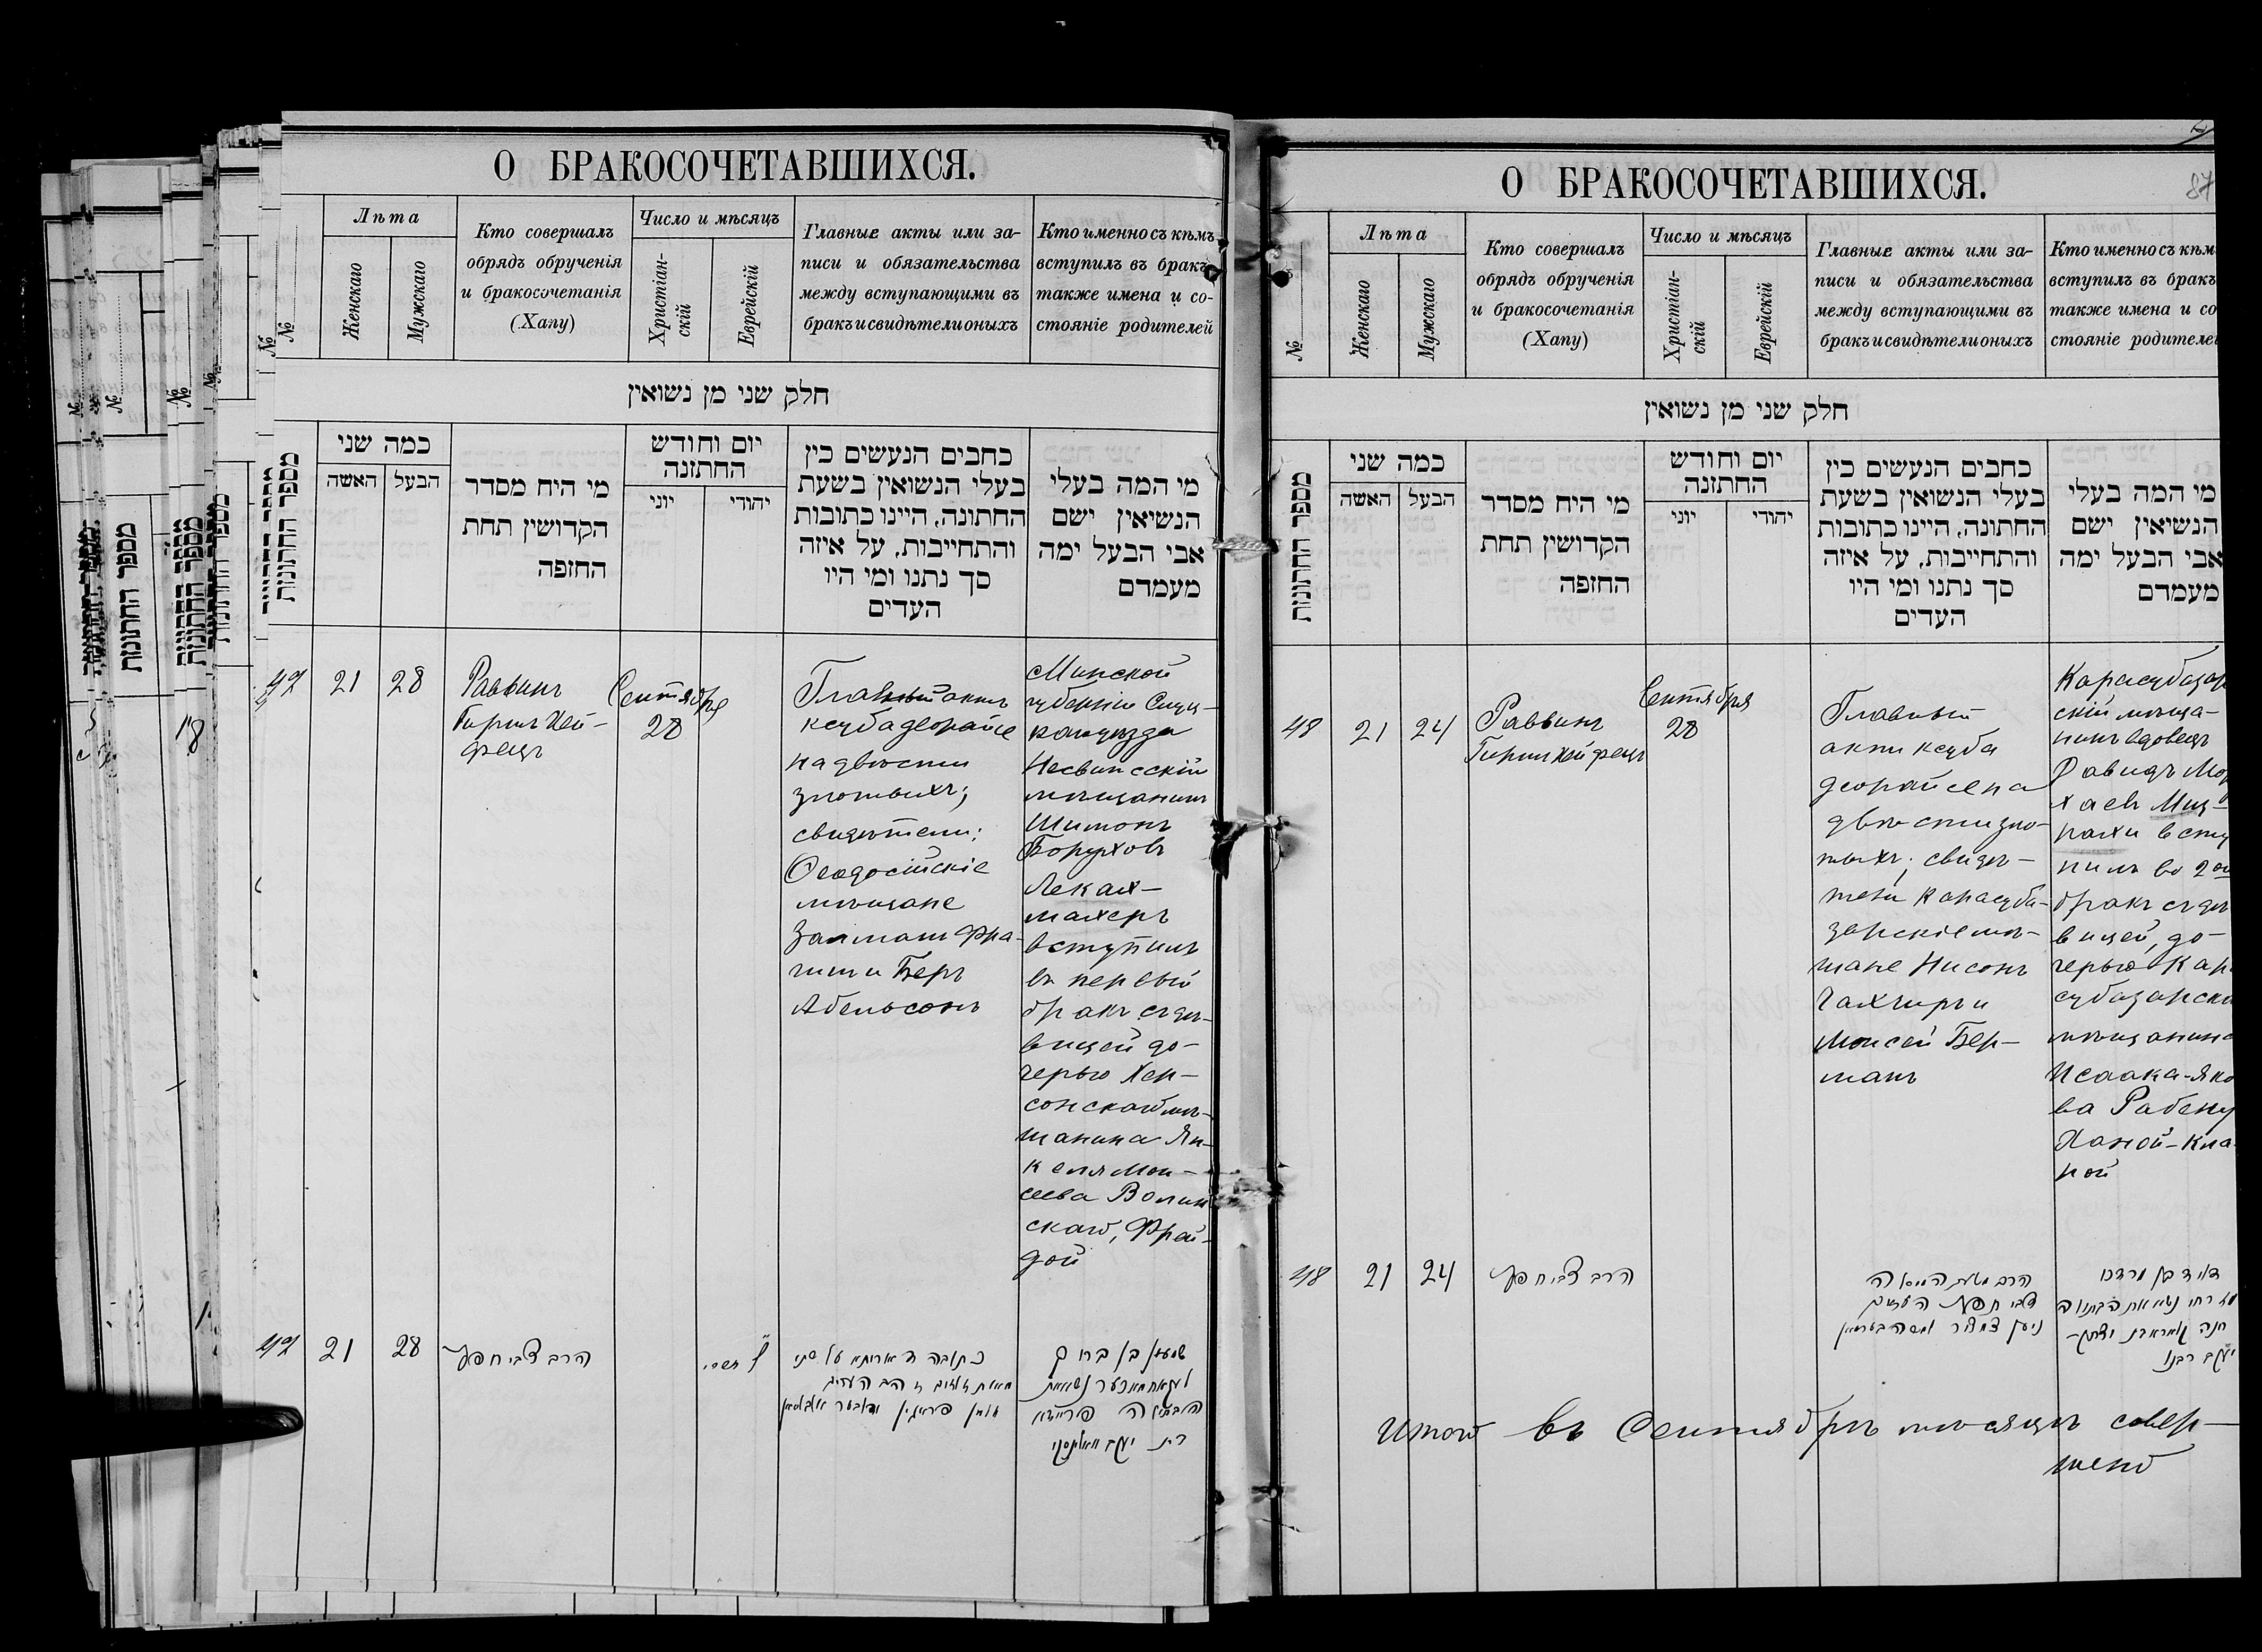 О БРАКОСОЧЕТАВШИХСЯ.
№
Лѣта
Женскаго
Мужскаго
Кто совершалъ
обрядъ обрученія
и бракосочетанія
(Хапу)
Число и мѣсяцъ
Христіан-
скій
Еврейскій
Главные акты или за-
писи и обязательства
между вступающими въ
бракъ и свидѣтели оныхъ
Кто именно съ кѣмъ
вступилъ въ бракъ
также имена и со-
стояніе родителей
חלק שני מן נשואין
מספר החתונות
כמה שני
האשה
הבעל
מי היח מסדר
הקדושין תחת
החזפה
יום וחודש
החתזנה
יוני
יהודי
כחבים הנעשים כין
בעלי הנשואין בשעת
החתונה, היינו כתובות
והתחייבות, על איזה
סך נתנו ומי היו
העדים
מי המה בעלי
הנשיאין ישם
אבי הבעל ימה
מעמדם
47
21
28
Раввинъ
Гиршъ Хей-
фецъ
Сентября
28
Главный актъ
ксуба деорайсе
на двѣсти
злотыхъ;
свидѣтели:
Ѳеодосійскіе
мѣщане
и Беръ
Абельсонъ
Минской
губерніи Слуц-
каго уѣзда
Несвижскій
мѣщанинъ
Шимонъ
Боруховъ
Леках-
махеръ
вступилъ
въ первый
бракъ съ дѣ-
вицей до-
черью Хер-
сонскаго мѣ-
щанина Ян-
келя Мои-
сеева Волин
скаго, Фрей-
дой
47
21
28
הרב צבי חפץ
כתובה דאורייתא על שתי
שמעון בן ברוך
О БРАКОСОЧЕТАВШИХСЯ.
87
№
Лѣта
Женскаго
Мужскаго
Кто совершалъ
обрядъ обрученія
и бракосочетанія
(Хапу)
Число и мѣсяцъ
Христіан-
скій
Еврейскій
Главные акты или за-
писи и обязательства
между вступающими въ
бракъ и свидѣтели оныхъ
Кто именно съ кѣм
вступилъ въ бракъ
также имена и со
стояніе родителе
חלק שני מן נשואין
מספר החתונות
כמה שני
האשה
הבעל
מי היח מסדר
הקדושין תחת
החזפה
יום וחודש
החתזנה
יוני
יהודי
כחבים הנעשים כין
בעלי הנשואין בשעת
החתונה, היינו כתובות
והתחייבות, על איזה
סך נתנו ומי היו
העדים
מי המה בעלי
הנשיאין ישם
אבי הבעל ימה
מעמדם
48
21
24
Раввинъ
Гиршъ Хейфецъ
Сентября
28
Главный
актъ ксуба
деорайсе на
двѣсти зло-
тыхъ; свидѣ-
тели Карасуба-
зарскіе мѣ-
щане Нисонъ
и
Моисей Бер-
манъ
Карасубазар
скій мѣща-
нинъ вдовецъ
Давидъ Мор
хаевъ Миз-
рахи всту
пилъ во 2ой
бракъ съ дѣ
вицей, до-
черью Кар
субазарска
мѣщанина
Исаака-Яко
ва Рабену
Ханой-Кла-
рой
48
21
24
הרב צבי חפץ
דוד בן מרדכי
יעקב רבנו
Итого въ Сентябрѣ мѣсяцѣ совер-
шено